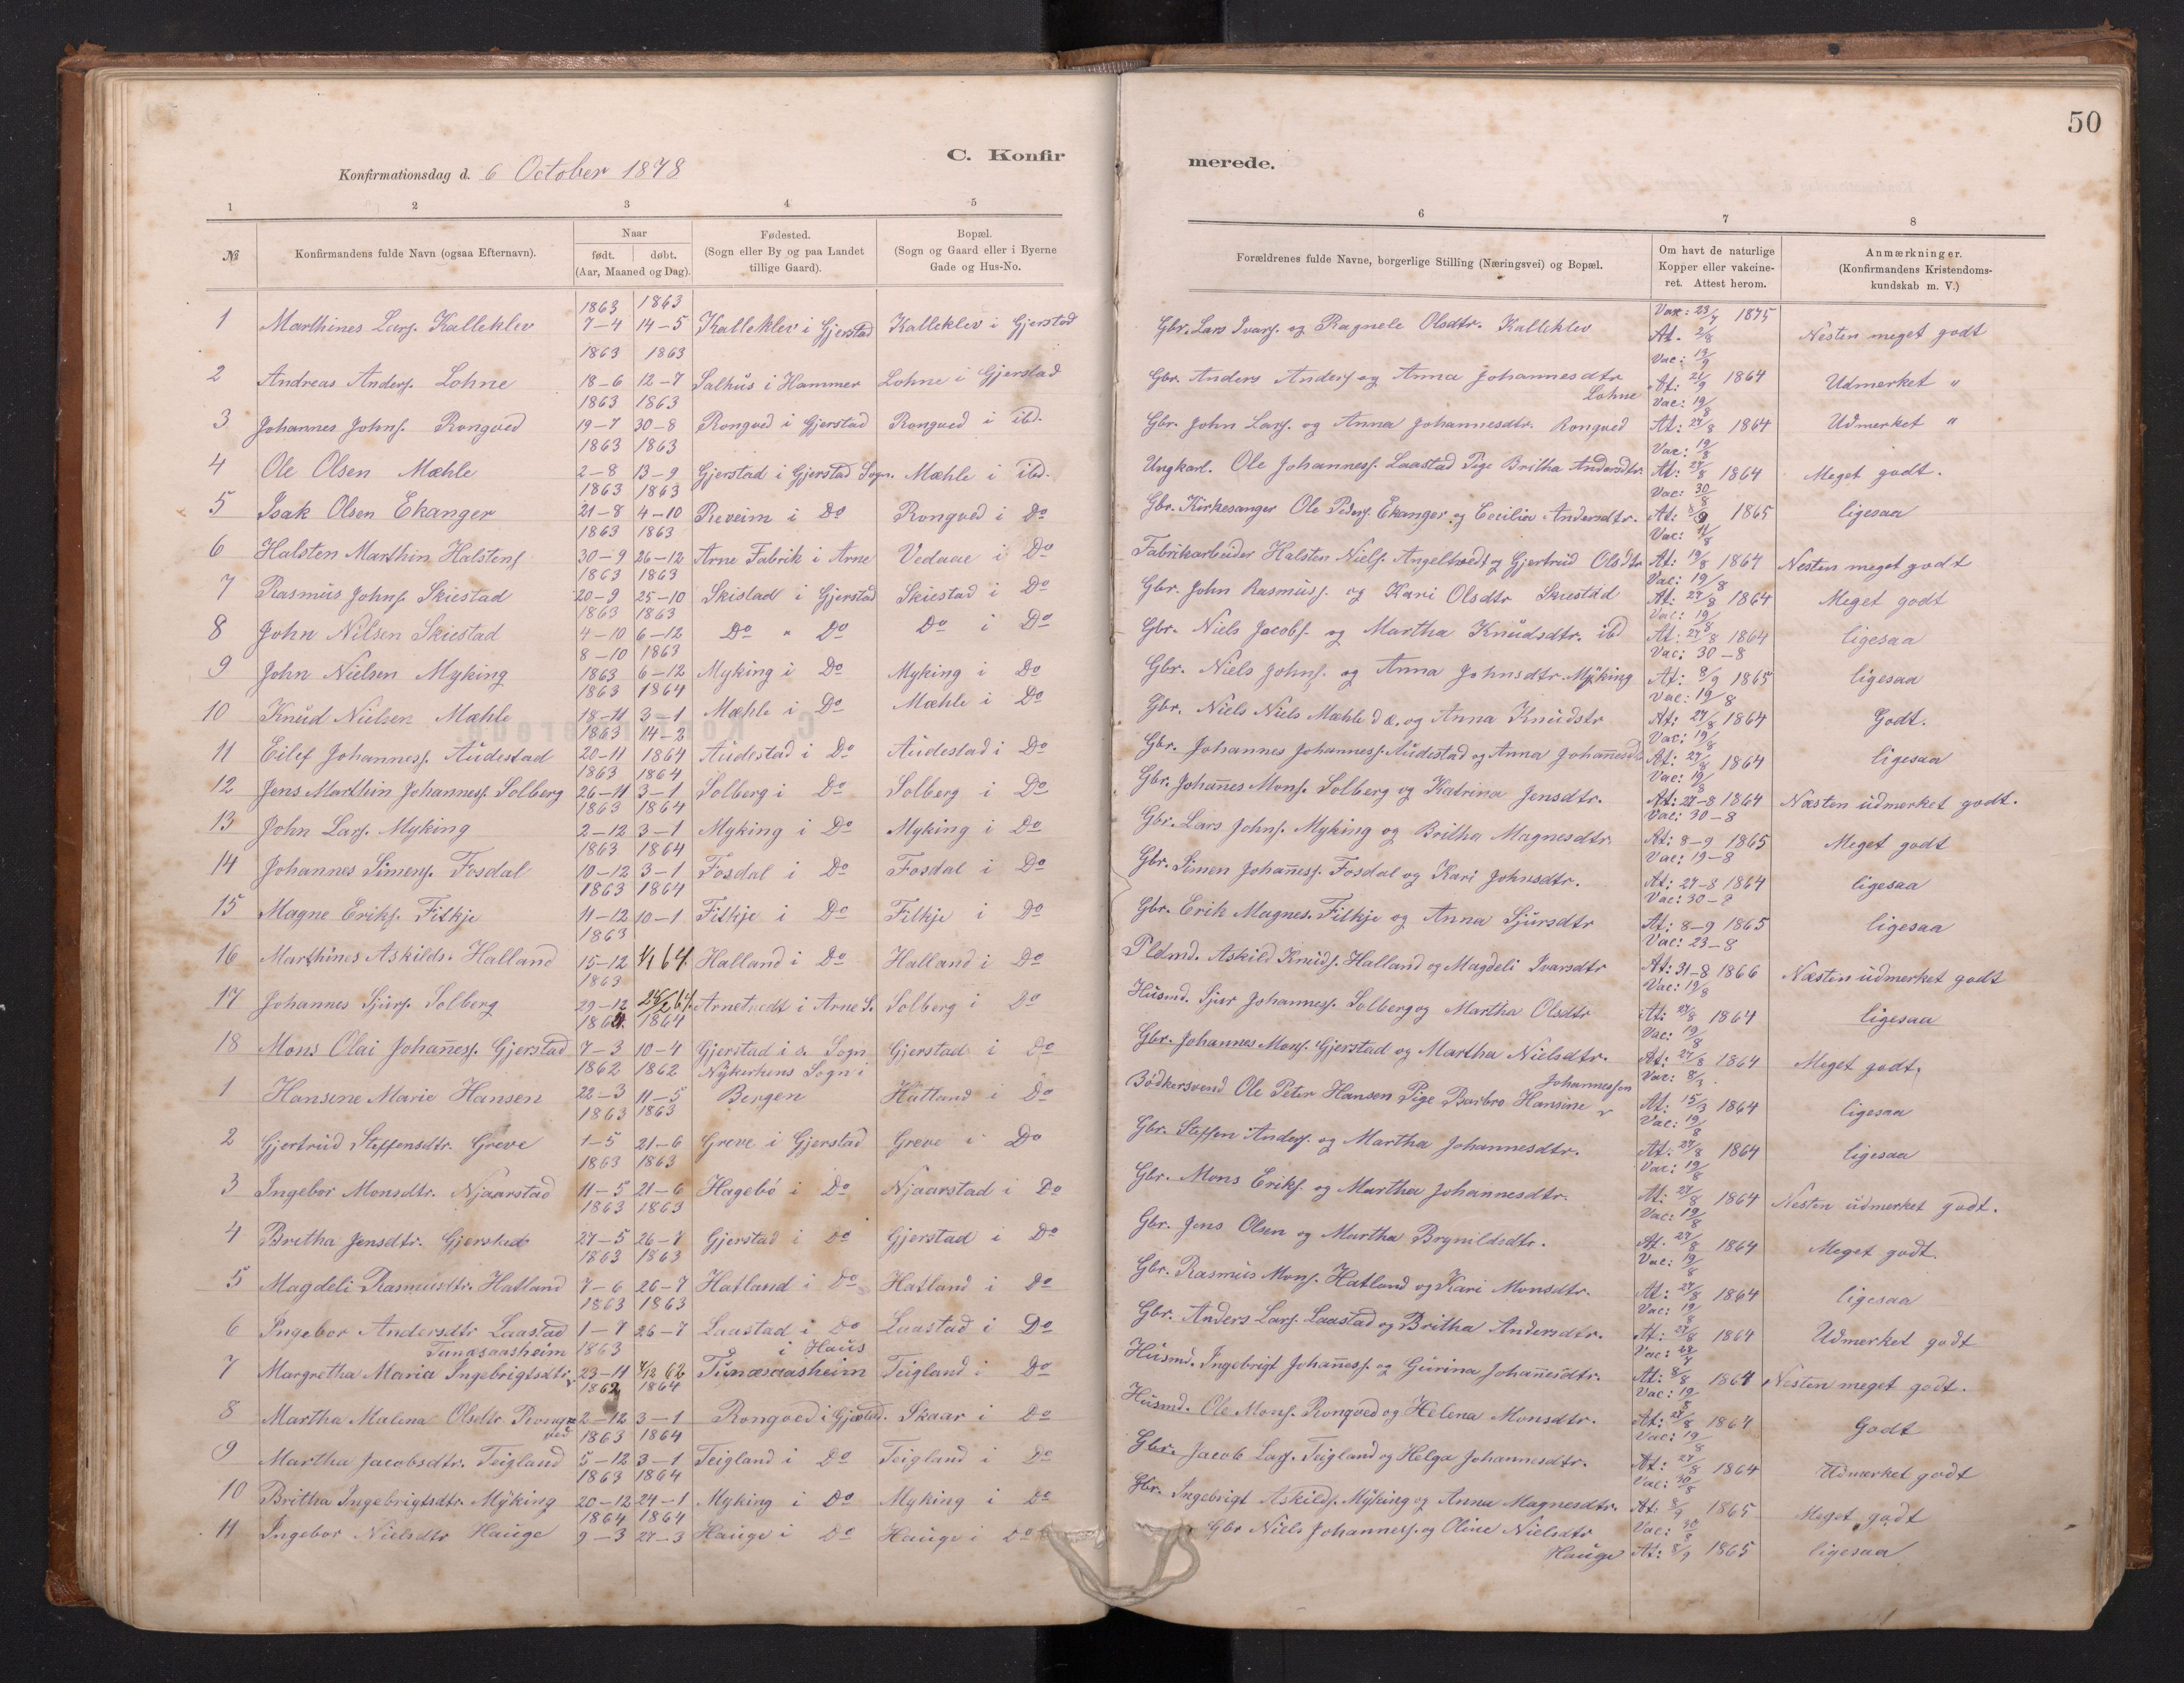 50
C. Konfir merede.
Konfirmationsdag d. 6 October 1878
1 2 3 4 5 6 7 8
№ Konfirmandens fulde Navn (ogsaa Efternavn). Naar født. døbt. (Aar, Maaned og Dag). Fødested. (Sogn eller By og paa Landet tillige Gaard). Bopæl. (Sogn og Gaard eller i Byerne Gade og Hus-No. Forældrenes fulde Navne, borgerlige Stilling (Næringsvei) og Bopæl. Om havt de naturlige Kopper eller vakcineret. Attest herom. Anmærkninger. (Konfirmandens Kristendomskundskab m. V.)
1 Marthines Lars. Kalleklev 1863 7-4 1863 14-5 Kalleklev i Gjerstad Kalleklev i Gjerstad Gbr. Lars Ivars. og Ragnele Olsdtr. Kalleklev Vac: 23/7 1875 At. 2/8 Nesten meget godt
2 Andreas Anders. Lohne 1863 18-6 1863 12-7 Salhus i Hammer Lohne i Gjerstad Gbr. Anders Anders. og Anna Johannesdtr Lohne Vac: 19/9 At: 21/9 1864 Udmerket "
3 Johannes Johns. Rongved 1863 19-7 1863 30-8 Rongved i Gjerstad Rongved i ibd. Gbr. John Lars. og Anna Johannesdtr. Rongved Vac: 19/8 At: 27/8 1864 Udmerket "
4 Ole Olsen Mæhle 1863 2-8 1863 13-9 Gjerstad i Gjerstad Sogn. Mæhle i ibd. Ungkarl. Ole Johanness. Laastad Pige Britha Andersdtr. Vac: 19/8 At: 27/8 1864 Meget godt.
5 Isak Olsen Ekanger 1863 21-8 1863 4-10 Reveim i Do Rongved i Do Gbr. Kirkesanger Ole Peders. Ekanger og Cecilia Andersdtr. Vac: 30/8 At: 8/9 1865 ligesaa
6 Halsten Marthin Halstens. 1863 30-9 1863 26-12 Arne Fabrik i Arne Vedaae i Do Fabrikarbeider Halsten Niels. Angeltvedt og Gjertrud Olsdtr At: 19/8 1864 Nesten meget godt
7 Rasmus Johns. Skiestad 1863 20-9 1863 25-10 Skistad i Gjerstad Skiestad i Do Gbr. John Rasmuss. og Kari Olsdtr Skiestad Vac: 19/8 At: 27/8 1864 Meget godt
8 John Nilsen Skiestad 1863 4-10 1863 6-12 Do " Do Do i Do Gbr. Niels Jacobs. og Martha Knudsdtr. ibd Vac: 19/8 At: 27/8 1864 ligesaa
9 John Nielsen Myking 8-10 1863 1863 6-12 Myking i Do Myking i Do Gbr. Niels Johns. og Anna Johnsdtr. Myking Vac: 30-8 At: 8/9 1865 ligesaa
10 Knud Nielsen Mæhle 1863 18-11 1864 3-1 Mæhle i Do Mæhle i Do Gbr. Niels Niels Mæhle d.æ. og Anna Knudstr Vac: 19/8 At: 27/8 1864 Godt.
11 Eilef Johanness. Audestad 1863 20-11 14-2 1864 Audestad i Do Audestad i Do Gbr. Johannes Johanness. Audestad og Anna Johannesd Vac: 19/8 At: 27/8 1864 ligesaa
12 Jens Marthin Johanness. Solberg 1863 26-11 1864 3-1 Solberg i Do Solberg i Do Gbr. Johannes Mons. Solberg og Katrina Jensdtr. Vac: 19/8 At: 27-8 1864 Næsten udmerket godt.
13 John Lars. Myking 1863 2-12 1864 3-1 Myking i Do Myking i Do Gbr. Lars Johns. Myking og Britha Magnesdtr. Vac: 30-8 At: 8-9 1865 Meget godt
14 Johannes Simens. Fosdal 1863 10-12 1864 3-1 Fosdal i Do Fosdal i Do Gbr. Simen Johanness. Fosdal og Kari Johnsdtr. Vac: 19-8 At: 27-8 1864 ligesaa
15 Magne Eriks. Fitkje 1863 11-12 1864 10-1 Fitkje i Do Fitkje i Do Gbr. Erik Magnes. Fitkje og Anna Sjursdtr Vac: 30-8 At: 8-9 1865 ligesaa
16 Marthines Askilds. Halland 1863 15-12 1/1 64 Halland i Do Halland i Do Pldmd. Askild Knuds. Halland og Magdeli Ivarsdtr Vac: 23-8 At: 31-8 1866 Næsten udmerket godt
17 Johannes Sjurs. Solberg 1863 29-12 28/2 64 Arnetvedt i Arne S. Solberg i Do Husmd. Sjur Johanness. Solberg og Martha Olsdtr Vac: 19/8 At: 27/8 1864 ligesaa
18 Mons Olai Johanness. Gjerstad 1864 7-3 1864 10-4 Gjerstad i s. Sogn Gjerstad i Do Gbr. Johannes Mons. Gjerstad og Martha Nielsdtr. Vac: 19/8 At: 27/8 1864 Meget godt.
1 Hansene Marie Hansen 1862 22-3 1862 11-5 Nykerkens Sogn i Bergen Hatland i Do Bødkersvend Ole Peter Hansen Pige Barbro Hansine Johannessen Vac: 8/3 At: 15/3 1864 ligesaa
2 Gjertrud Steffensdtr. Greve 1863 1-5 1863 21-6 Greve i Gjerstad Greve i Do Gbr. Steffen Anders. og Martha Johannesdtr. Vac: 19/8 At: 27/8 1864 ligesaa
3 Ingebor Monsdtr. Njaarstad 1863 11-5 1863 21-6 Hagebø i Do Njaarstad i Do Gbr. Mons Eriks. og Martha Johannesdtr. Vac: 19/8 At: 27/8 1864 Nesten udmerket godt.
4 Bretha Jensdtr. Gjerstad 1863 27-5 1863 26-7 Gjerstad i Do Gjerstad i Do Gbr. Jens Olsen og Martha Brynildsdtr. Vac: 19/8 At: 27/8 1864 Meget godt.
5 Magdeli Rasmusdtr. Hatland 1863 7-6 1863 26-7 Hatland i Do Hatland i Do Gbr. Rasmus Mons. Hatland og Kari Monsdtr. Vac: 19/8 At: 27/8 1864 ligesaa
6 Ingebor Andersdtr Laastad 1863 1-7 1863 26-7 Laastad i Do Laastad i Do Gbr. Anders Lars. Laastad og Britha Andersdtr. Vac: 19/8 At: 27/8 1864 Udmerket godt
7 Margretha Maria Ingebrigtsdtr. Tunæsaasheim 1863 23-11 7/12 62 Tunæsaasheim i Haus Teigland i Do Husmd. Ingebrigt Johanness. og Gurina Johannesdtr. At: 8/8 1864 Nesten meget godt.
8 Martha Malena Olsdtr. Rongved 1862 2-12 1864 3-1 Rongved i Gjerstd. Skaar i Do Husmd. Ole Mons. Rongved og Helena Monsdtr. Vac: 19/8 At: 27/8 1864 Godt
9 Martha Jacobsdtr. Teigland 1863 5-12 1864 3-1 Teigland i Do Teigland i Do Gbr. Jacob Lars. Teigland og Helga Johannesdtr. Vac: 19/8 At: 27/8 1864 Udmerket godt
10 Britha Ingebrigtsdtr. Myking 1863 20-12 1864 24-1 Myking i Do Myking i Do Gbr. Ingebrigt Askilds. Myking og Anna Magnesdtr. Vac: 30/8 At: 8/9 1865 Meget godt
11 Ingebor Nielsdtr Hauge 1864 9-3 1864 27-3 Hauge i Do Hauge i Do Gbr Niels Johanness. og Oline Nielsdtr Hauge Vac: 30/8 At: 8/9 1865 ligesaa